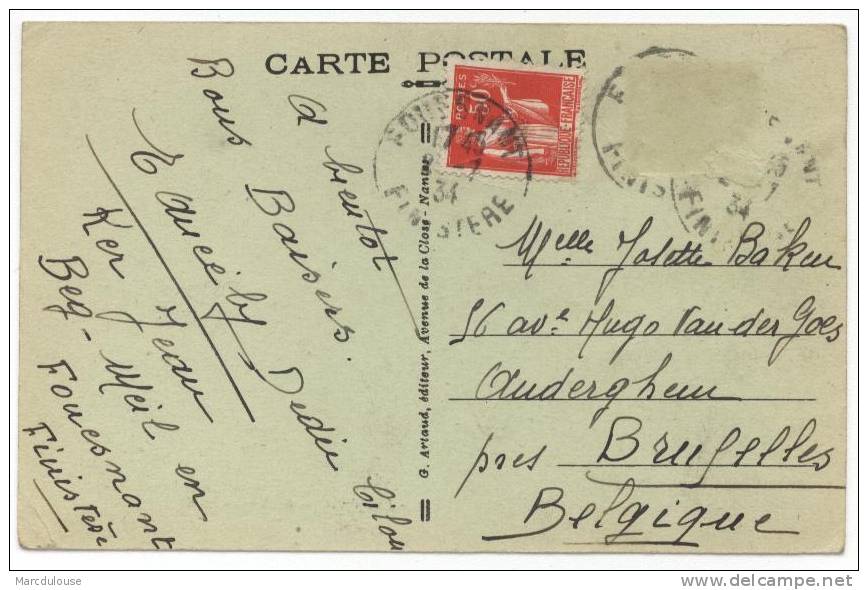 CARTE POSTALE
POSTES
50
REPUBLIQUE-FRANÇAISE
FOUESNANT
17 45
34
FINISTERE
34
FINIS
G. Artaud, éditeur, Avenue de la Close - Nantes
A bientot
Bons Baisers.
Dedée
Lilou
Ker Jean
Beg-Meil en
Fouesnant
Finistère
Melle Josette Baken
56 ave Hugo Van der Goes
Auderghem
pres Bruxelles
Belgique
Marcdulouse
www.delcampe.net